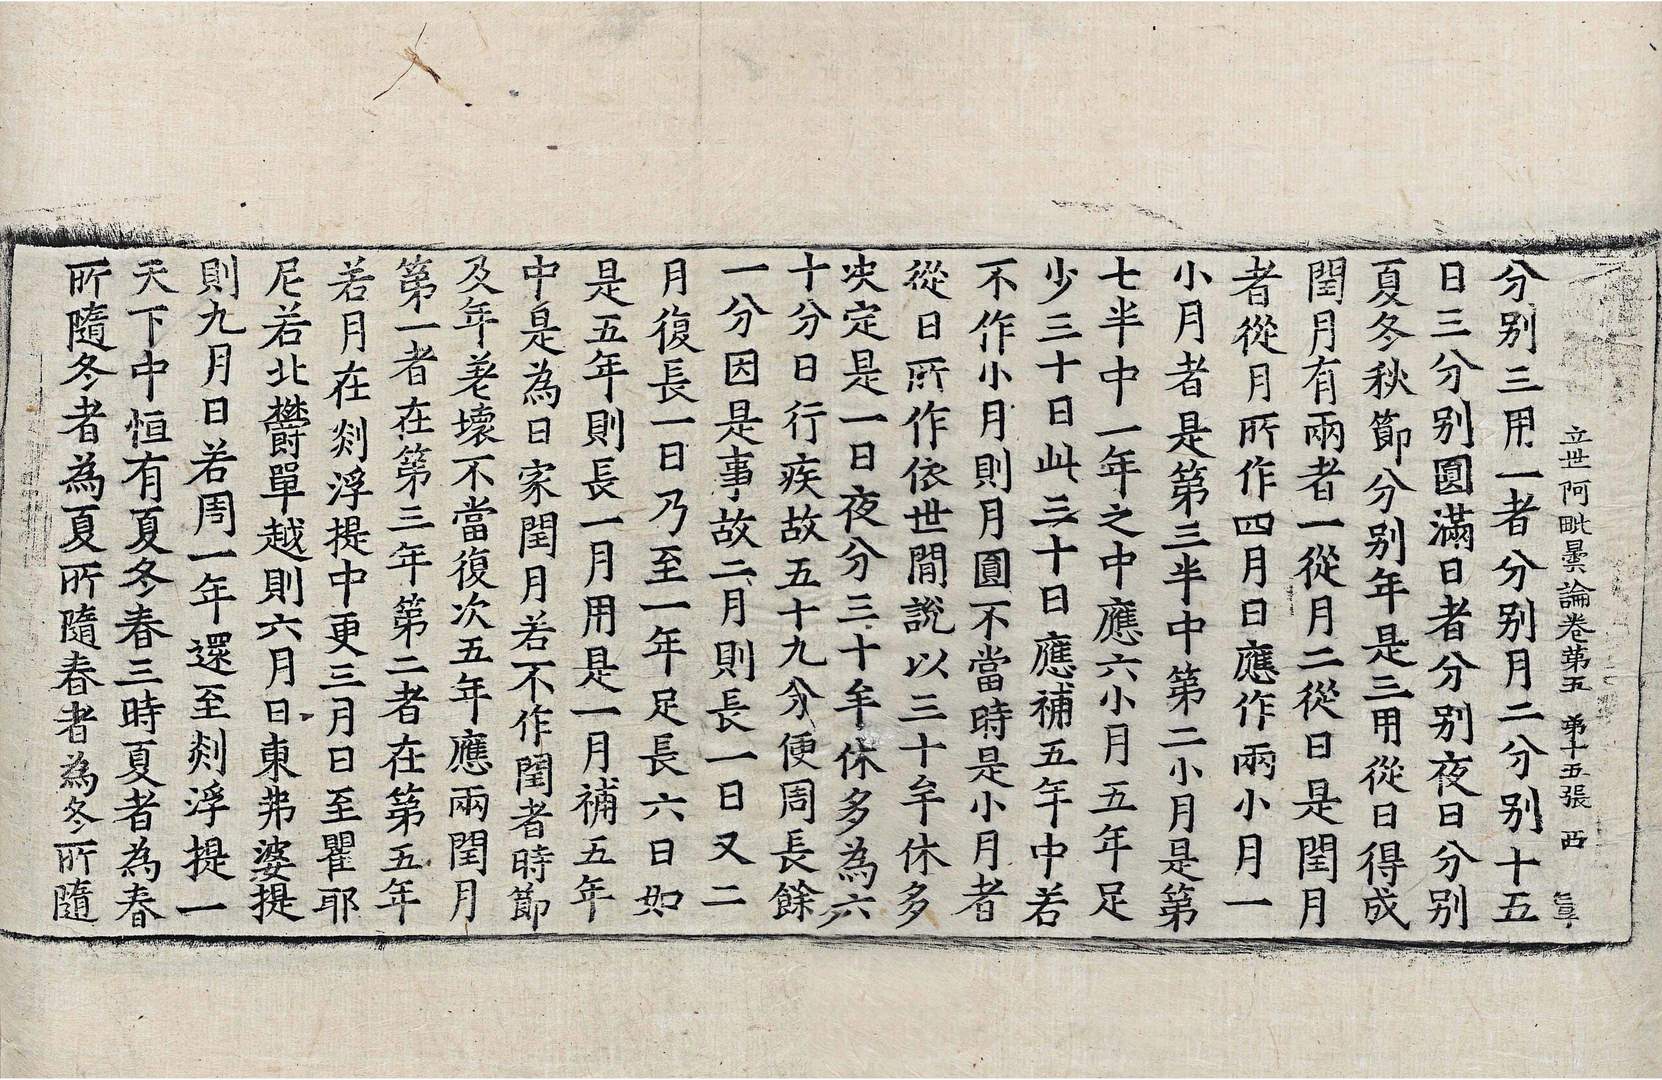 立世阿毗曇論卷第五 第十五張 西
分別三用一者分別月二分別十五
日三分別圓滿日者分別夜日分別
夏冬秋節分別年是三用從日得成
閏月有兩者一從月二從日是閏月
者從月所作四月日應作兩小月一
小月者是第三半中第二小月是第
七半中一年之中應六小月五年足
少三十日此三十日應補五年中若
不作小月則月圓不當時是小月者
從日所作依世間說以三十牟休多
決定是一日夜分三十牟休多為六
十分日行疾故五十九分便周長餘
一分因是事故二月則長一日又二
月復長一日乃至一年足長六日如
是五年則長一月用是一月補五年
中是為日家閏月若不作閏者時節
及年美壞不當復次五年應兩閏月
第一者在第三年第二者在第五年
若月在剡浮提中更三月日至瞿耶
尼若北欝單越則六月日東弗婆提
則九月日若周一年還至剡浮提一
天下中恒有夏冬春三時夏者為春
所隨冬者為夏所隨春者為冬所隨